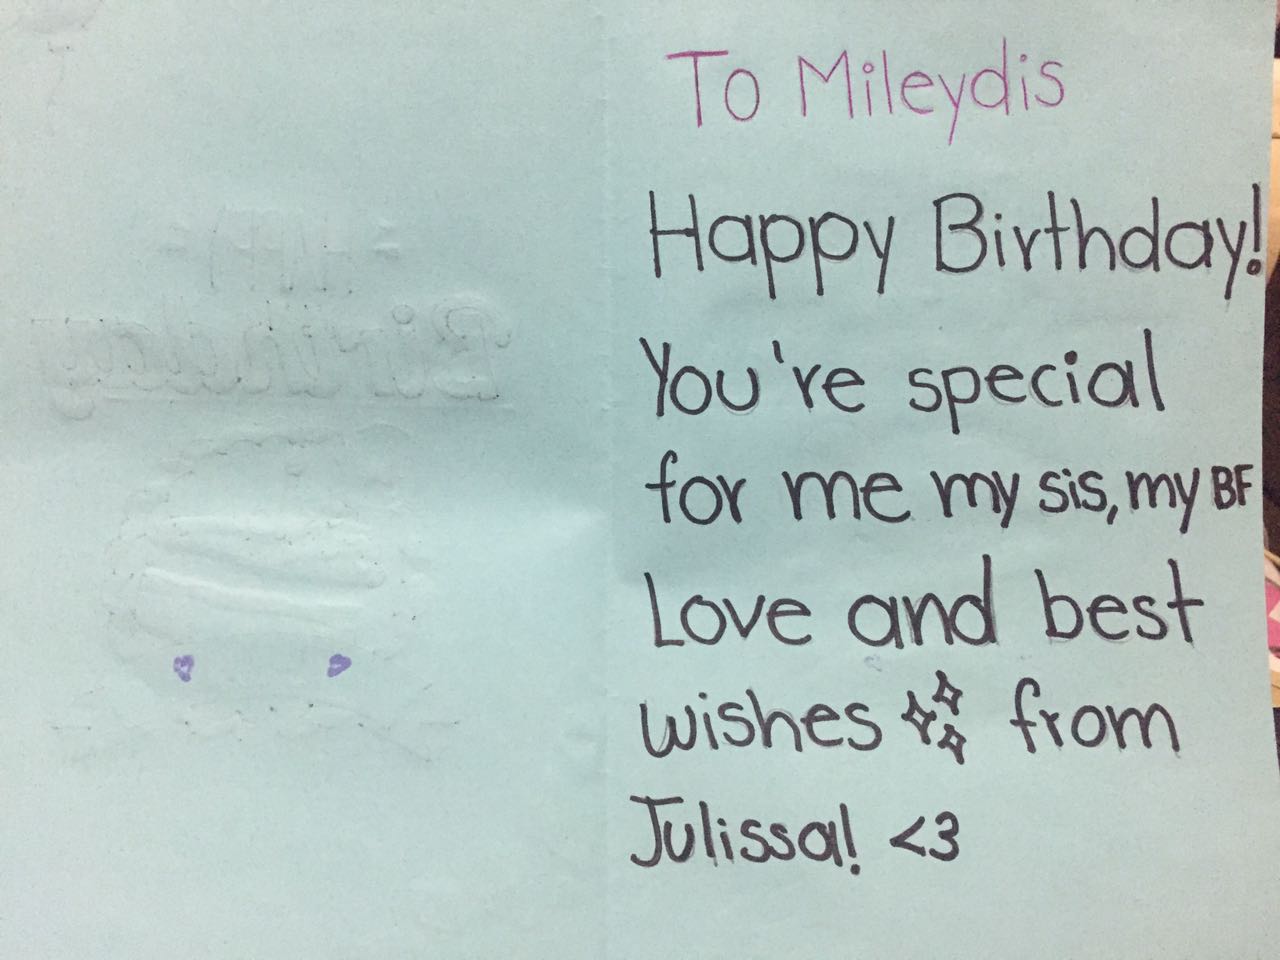 To Mileydis
Happy Birthday!
You're special
for me my sis, my BF
Love and best
wishes from
Julissa! <3
Birthday